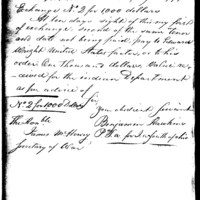 Exchange No. 2 for 1000 dollars
At ten days sight of this my first
of exchange, second of the same tenor
and date not being paid, pay to Edward
Wright United States factor, or to his
order One Thousand dollars, Value
received for the Indian Department
as per advice of
No. 2 for 1000 Dolls
your obedient Servant
The Honble Benjamin Hawkins
James McHenry
Secretary of War